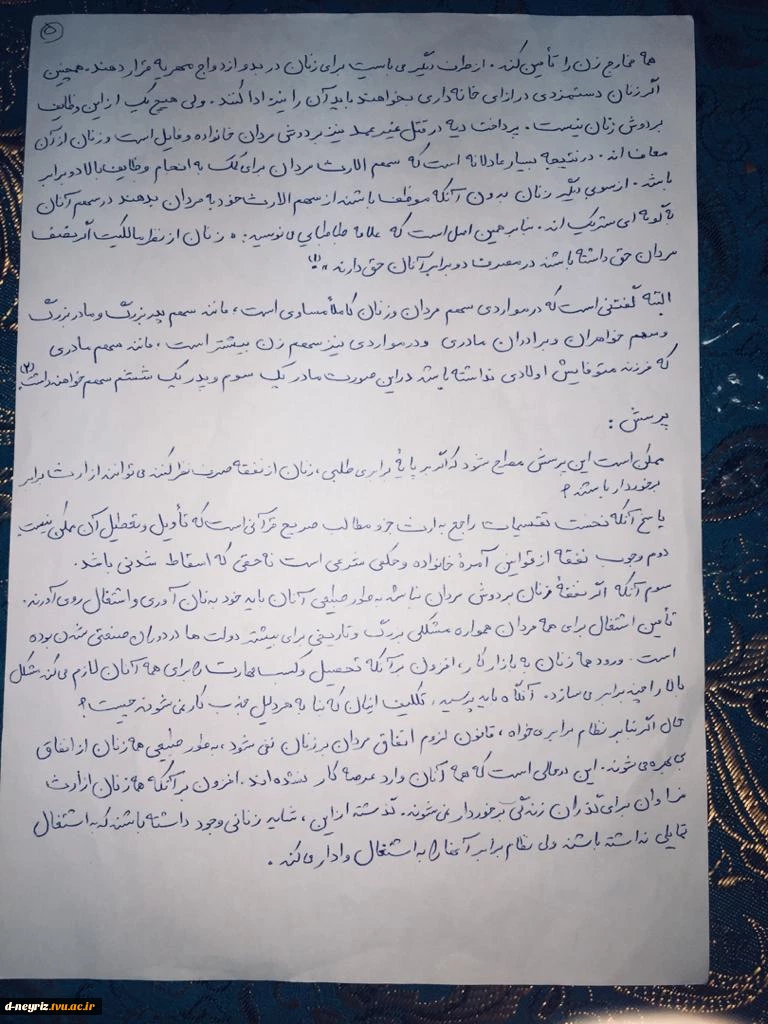 ۵
همه مخارج زن را تأمین کند. از طرف دیگر می بایست برای زنان در بدو ازدواج مهریه قرار دهند. همچنین
اگر زنان دستمزدی در ازای خانه داری بخواهند باید آن را نیز ادا کنند. ولی هیچ یک از این وظایف
بر دوش زنان نیست. پرداخت دیه در قتل غیر عمد نیز بر دوش مردان خانواده و فامیل است و زنان از آن
معاف اند. در نتیجه بسیار عادلانه است که سهم الارث مردان برای کمک به انجام وظایف بالا دو برابر
باشد. از سوی دیگر زنان بدون آنکه موظف باشند از سهم الارث خود به مردان بدهند در سهم آنان
به گونه ای شریک اند. بنابر همین اصل است که علامه طباطبایی می نویسد: « زنان از نظر مالکیت اگر نصف
مردان حق داشته باشند در مصرف دو برابر آنان حق دارند » (۱)
البته گفتنی است که در مواردی سهم مردان و زنان کاملاً مساوی است، مانند سهم پدر بزرگ و مادر بزرگ
و سهم خواهران و برادران مادری و در مواردی نیز سهم زن بیشتر است، مانند سهم مادری
که فرزند متوفایش اولادی نداشته باشد در این صورت مادر یک سوم و پدر یک ششم سهم خواهند داشت. (۲)
پرسش :
ممکن است این پرسش مطرح شود که اگر بر پایهٔ برابری طلبی، زنان از نفقه صرف نظر کنند می توانند از ارث برابر
برخوردار باشند؟
پاسخ آنکه نخست تقسیمات راجع به ارث جزء مطالب صریح قرآنی است که تأویل و تعطیل آن ممکن نیست.
دوم وجوب نفقه از قوانین آمرهٔ خانواده و حکمی شرعی است نه حقی که اسقاط شدنی باشد.
سوم آنکه اگر نفقهٔ زنان بر دوش مردان نباشد به طور طبیعی آنان باید خود به نان آوری و اشتغال روی آورند.
تأمین اشتغال برای همه مردان همواره مشکلی بزرگ و تاریخی برای بیشتر دولت ها در دوران صنعتی شدن بوده
است. ورود همه زنان به بازار کار، افزون بر آنکه تحصیل و کسب مهارت را برای همه آنان لازم می کند مشکل
بالا را چند برابر می سازد. آنگاه باید پرسید، تکلیف اینان که بنا به هر دلیل جذب کار نمی شوند چیست؟
حال اگر بنابر نظام برابری خواه، قانون لزوم انفاق مردان بر زنان نفی شود، به طور طبیعی همه زنان از انفاق
بی بهره می شوند. این در حالی است که همه آنان وارد عرصه کار نشده اند. افزون بر آنکه همه زنان از ارث
فراوان برای گذران زندگی برخوردار نمی شوند. گذشته از این، شاید زنانی وجود داشته باشند که به اشتغال
تمایلی نداشته باشند ولی نظام برابر آنها را به اشتغال وادار می کند.
d-neyriz.tvu.ac.ir